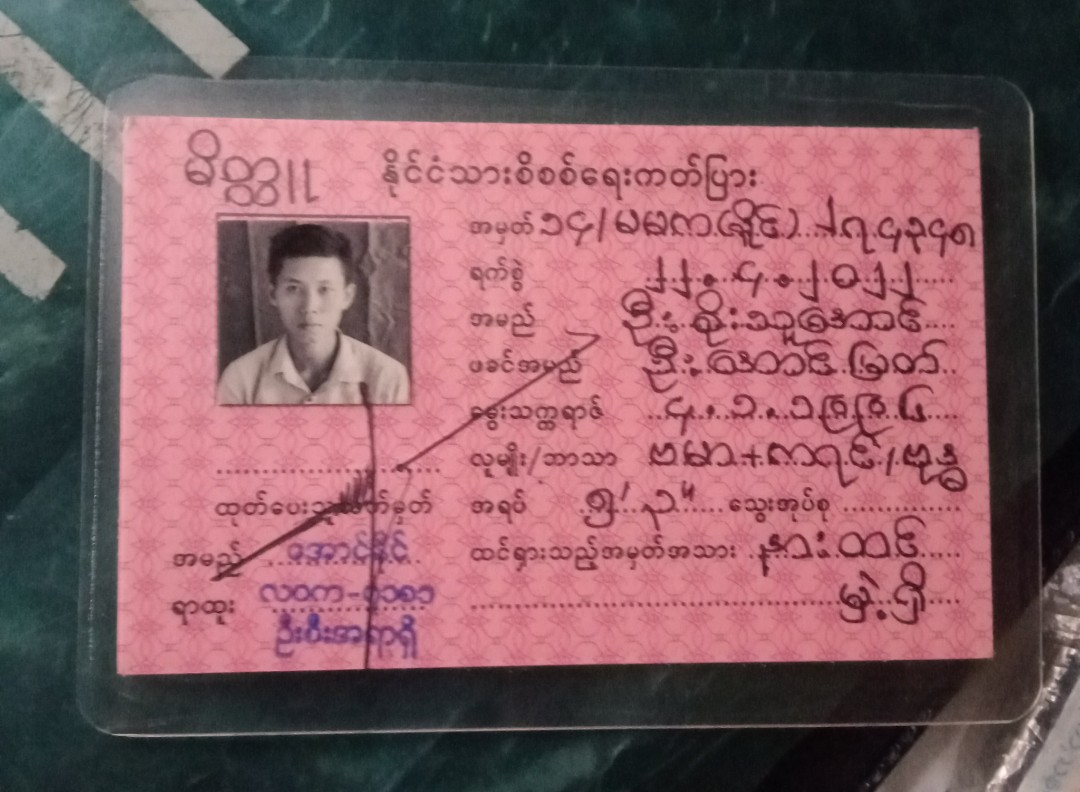 မိတ္တူ
နိုင်ငံသားစိစစ်ရေးကတ်ပြား
အမှတ် ၁၄/မမက(နိုင်) ၂၇၄၃၄၈
ရက်စွဲ ၂၂.၄.၂၀၂၂
အမည် ဦးစိုးသူအောင်
ဖခင်အမည် ဦးအောင်မြတ်
မွေးသက္ကရာဇ် ၄.၁.၁၉၉၆
လူမျိုး/ဘာသာ ဗမာ+ကရင်/ဗုဒ္ဓ
အရပ် ၅' ၃" သွေးအုပ်စု
ထုတ်ပေးသူလက်မှတ်
ထင်ရှားသည့်အမှတ်အသား နားထင်
မှဲ့ရှိ
အမည် အောင်နိုင်
ရာထူး လဝက-
ဦးစီးအရာရှိ